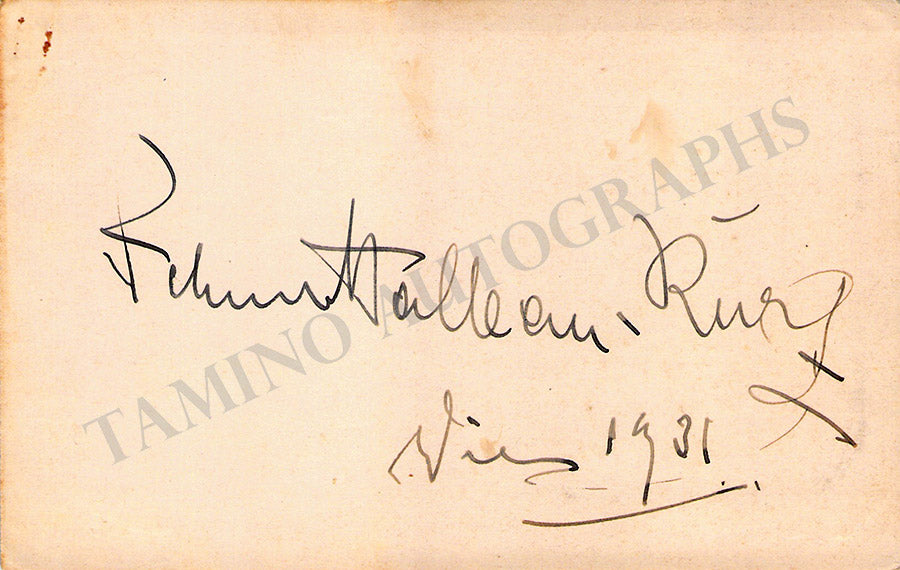 Selma Halban-Kurz
Wien 1931.
TAMINO AUTOGRAPHS